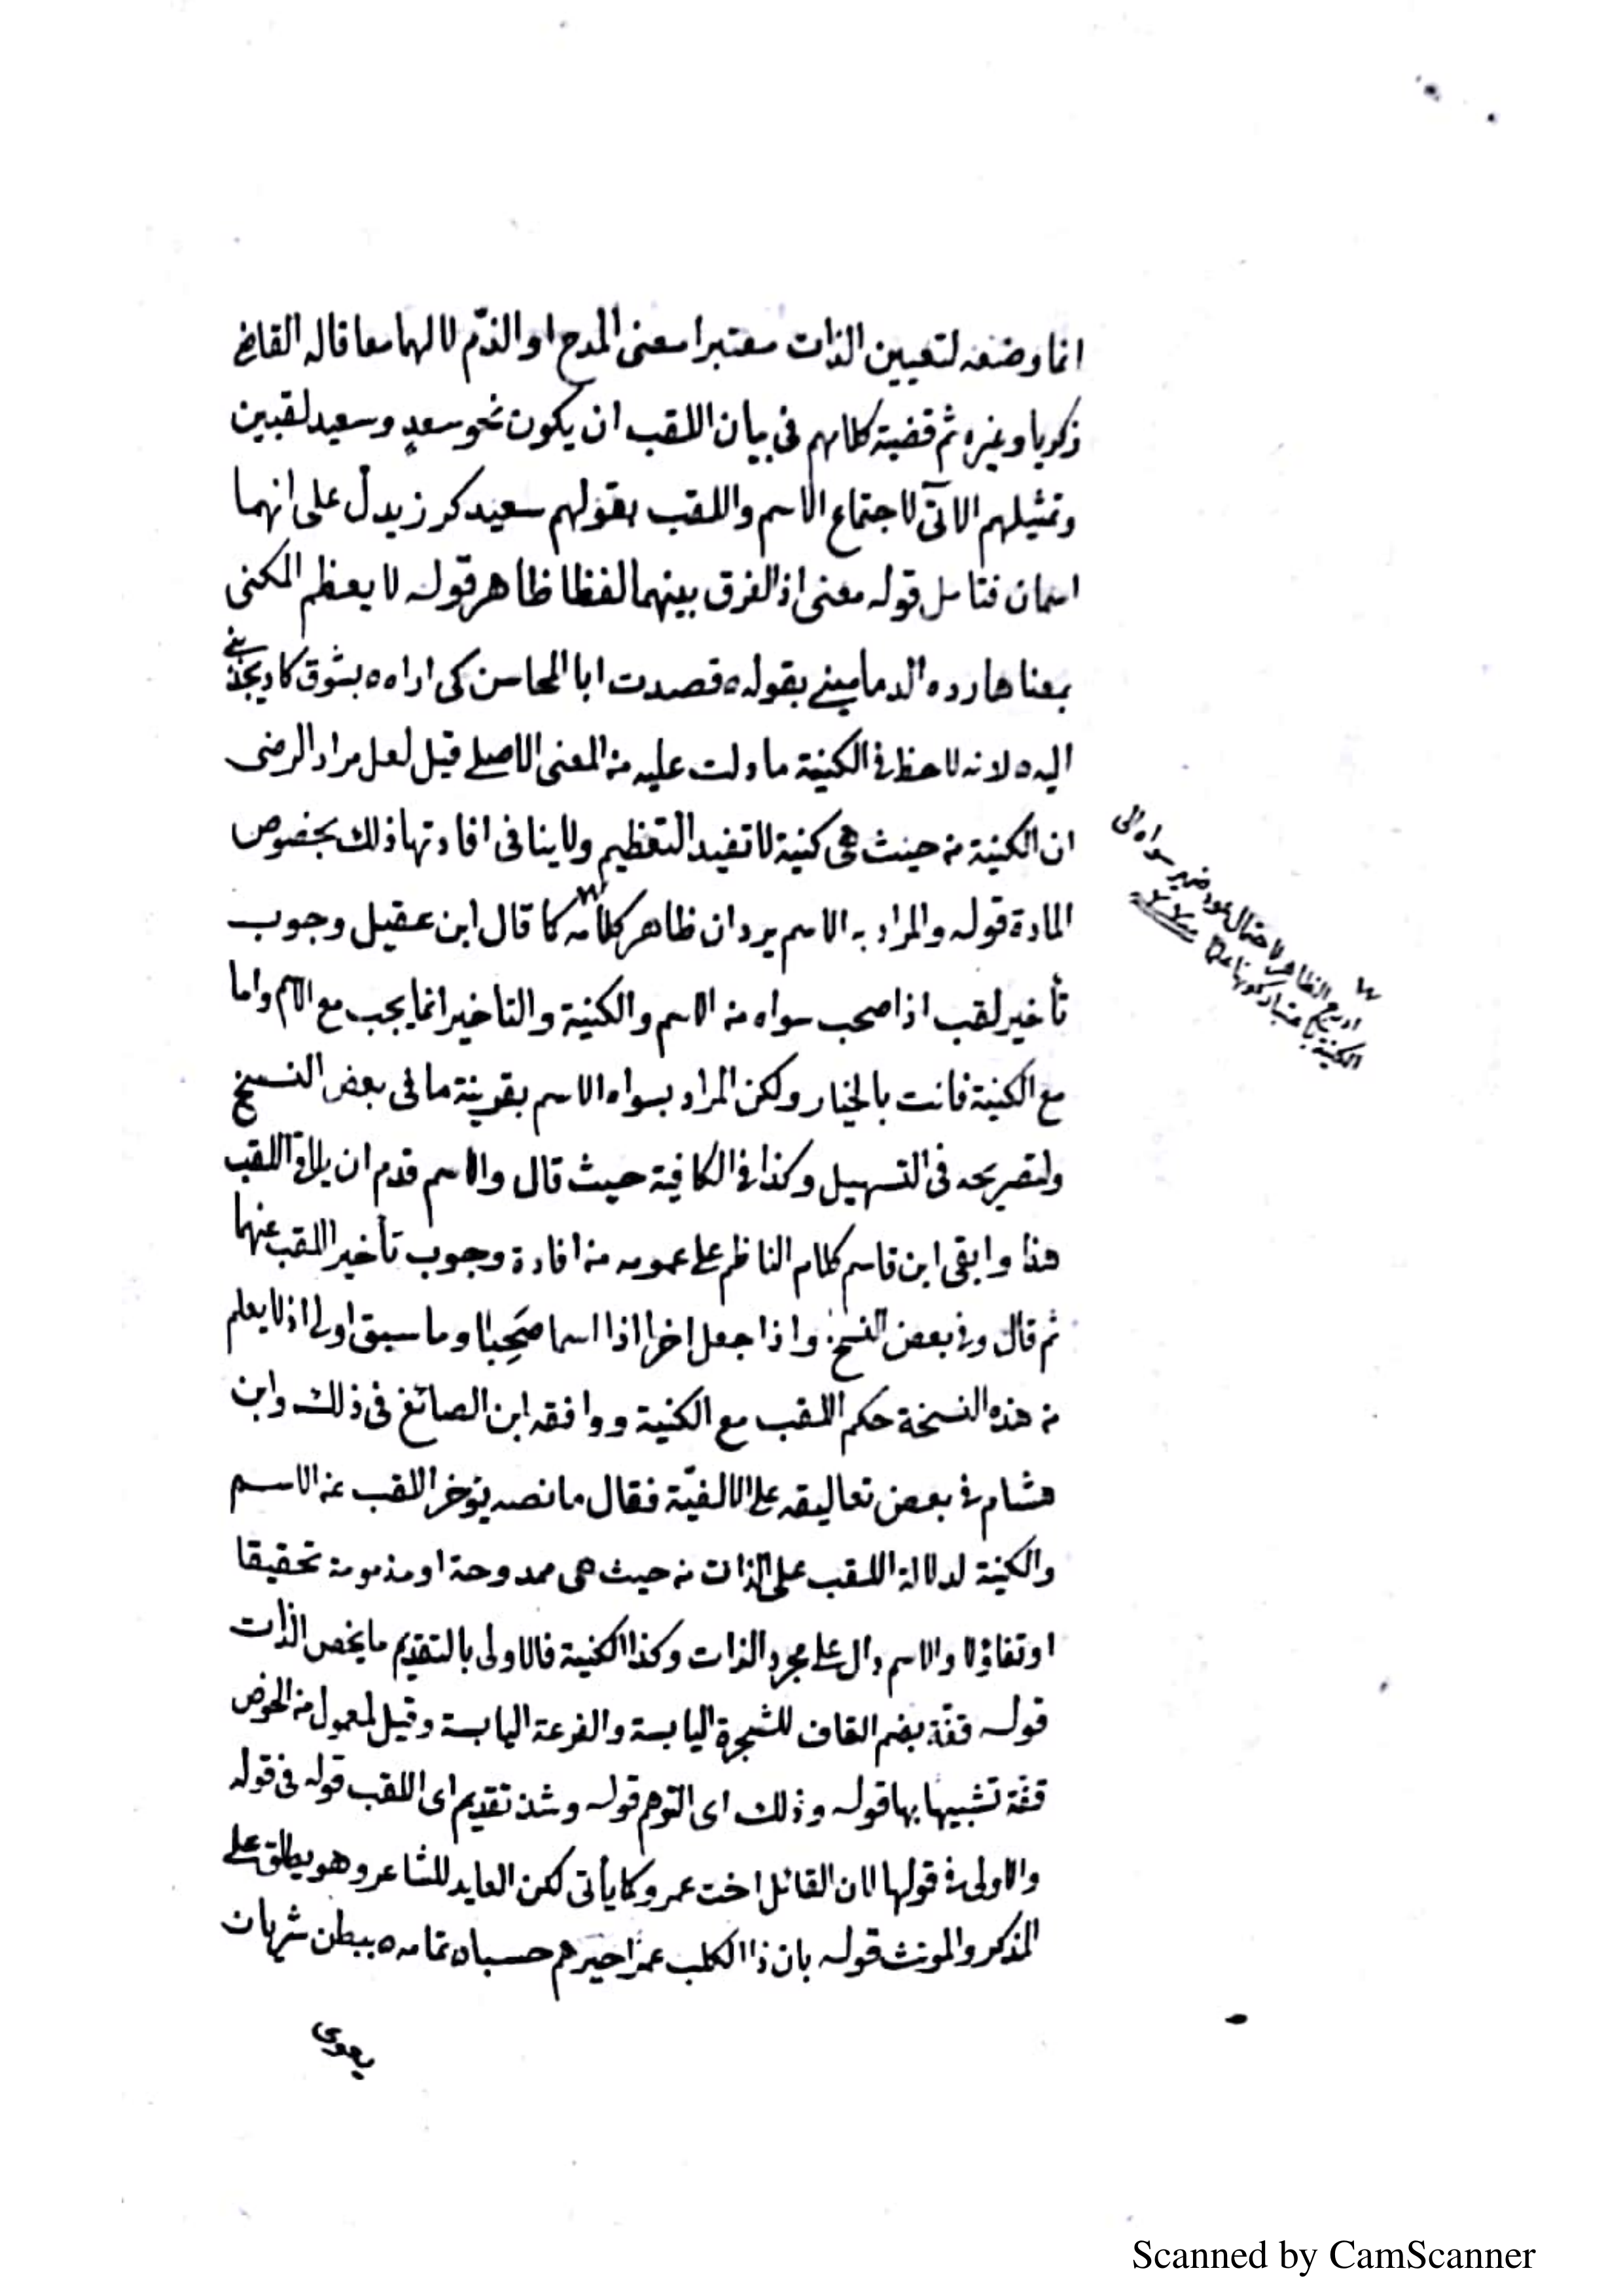 انما وضعه لتعيين الذات معتبرا معنى المدح او الذّم لا لهما معا قاله القاضي
زكريا وغيره ثم قضية كلامهم فى بيان اللقب ان يكون نحو سعدٍ وسعيد لقبين
وتمثيلهم الآتى لاجتماع الاسم واللقب بقولهم سعيد كرز يدل على انهما
اسمان فتامل قوله معنى اذ الفرق بينهما لفظا ظاهر قوله لا يعظم المكنى
بمعناها رده الدمامينى بقوله ه قصدت ابا المحاسن كى اراه ه بشوق كاد يجذبنى
اليه ه لانه لاحظ فى الكنية ما دلت عليه من المعنى الاصلى قيل لعل مراد الرضى
ان الكنية من حيث هى كنية لا تفيد التعظيم ولا ينافى افادتها ذلك بخصوص
المادة قوله والمراد به الاسم يرد ان ظاهر كلامه كما قال ابن عقيل وجوب
تأخير لقب اذا صحب سواه من الاسم والكنية والتاخير انما يجب مع الاسم واما
مع الكنية فانت بالخيار ولكن المراد بسواه الاسم بقرينة ما فى بعض النسخ
ولتصريحه فى التسهيل وكذا فى الكافية حيث قال والاسم قدم ان يلاق اللقب
هذا وابقى ابن قاسم كلام الناظم على عمومه من افادة وجوب تأخير اللقب عنهما
ثم قال وفى بعض النسخ وذا جعل اخرا اذا اسما صَحِبا وما سبق اولى اذ لا يعلم
من هذه النسخة حكم اللقب مع الكنية ووافقه ابن الصائغ فى ذلك وابن
هشام فى بعض تعاليقه على الالفيّة فقال ما نصه يؤخر اللقب عن الاسم
والكنية لدلالة اللقب على الذات من حيث هى ممدوحة او مذمومة تحقيقا
او تفاؤلا والاسم دال على مجرد الذات وكذا الكنية فالاولى بالتقديم ما يخص الذات
قوله قفّة بضم القاف للشجرة اليابسة والقرعة اليابسة وقيل لمعمول من الخوص
قفّة تشبيها بها قوله وذلك اى التوهم قوله وشذ تقديم اى اللقب قوله فى قوله
والاولى فى قولها لان القائل اخت عمرو كما يأتى لكن العايد للشاعر وهو يطلق على
المذكر والمونث قوله بان ذا الكلب عمرا خيرهم حسبا ه تمامه ه ببطن شريان
يعوى
الظاهر لاحتمال عود ضمير سواه الى
الكنية باعتبار كونها علما